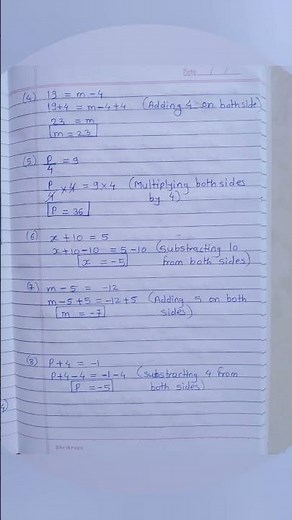 Date / /
(4) 19 = m - 4
19+4 = m-4+4 (Adding 4 on both side)
23 = m
m = 23
(5) P/4 = 9
P/4 × 4 = 9×4 (Multiplying both sides
by 4)
P = 36
(6) x + 10 = 5
x + 10 - 10 = 5 - 10 (Substracting 10
x = -5 from both sides)
(7) m - 5 = -12
m - 5 + 5 = -12 + 5 (Adding 5 on both
m = -7 sides)
(8) P + 4 = -1
P+4-4 = -1-4 (Substracting 4 from
P = -5 both sides)